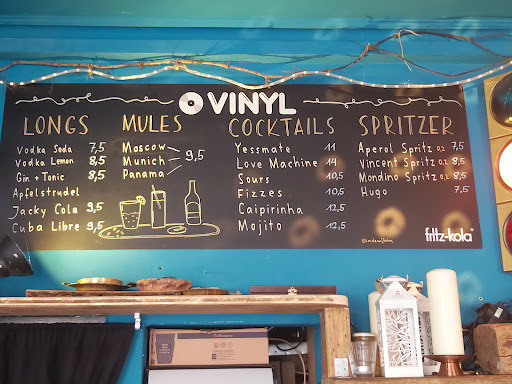 VINYL
LONGS
Vodka Soda 7,5
Vodka Lemon 8,5
Gin + Tonic 8,5
Apfelstrudel
Jacky Cola 9,5
Cuba Libre 9,5
MULES
Moscow
Munich 9,5
Panama
COCKTAILS
Yessmate 11
Love Machine 14
Sours 10,5
Fizzes 10,5
Caipirinha 12,5
Mojito 12,5
SPRITZER
Aperol Spritz 0,2 7,5
Vincent Spritz 0,2 8,5
Mondino Spritz 0,2 8,5
Hugo 7,5
fritz-kola